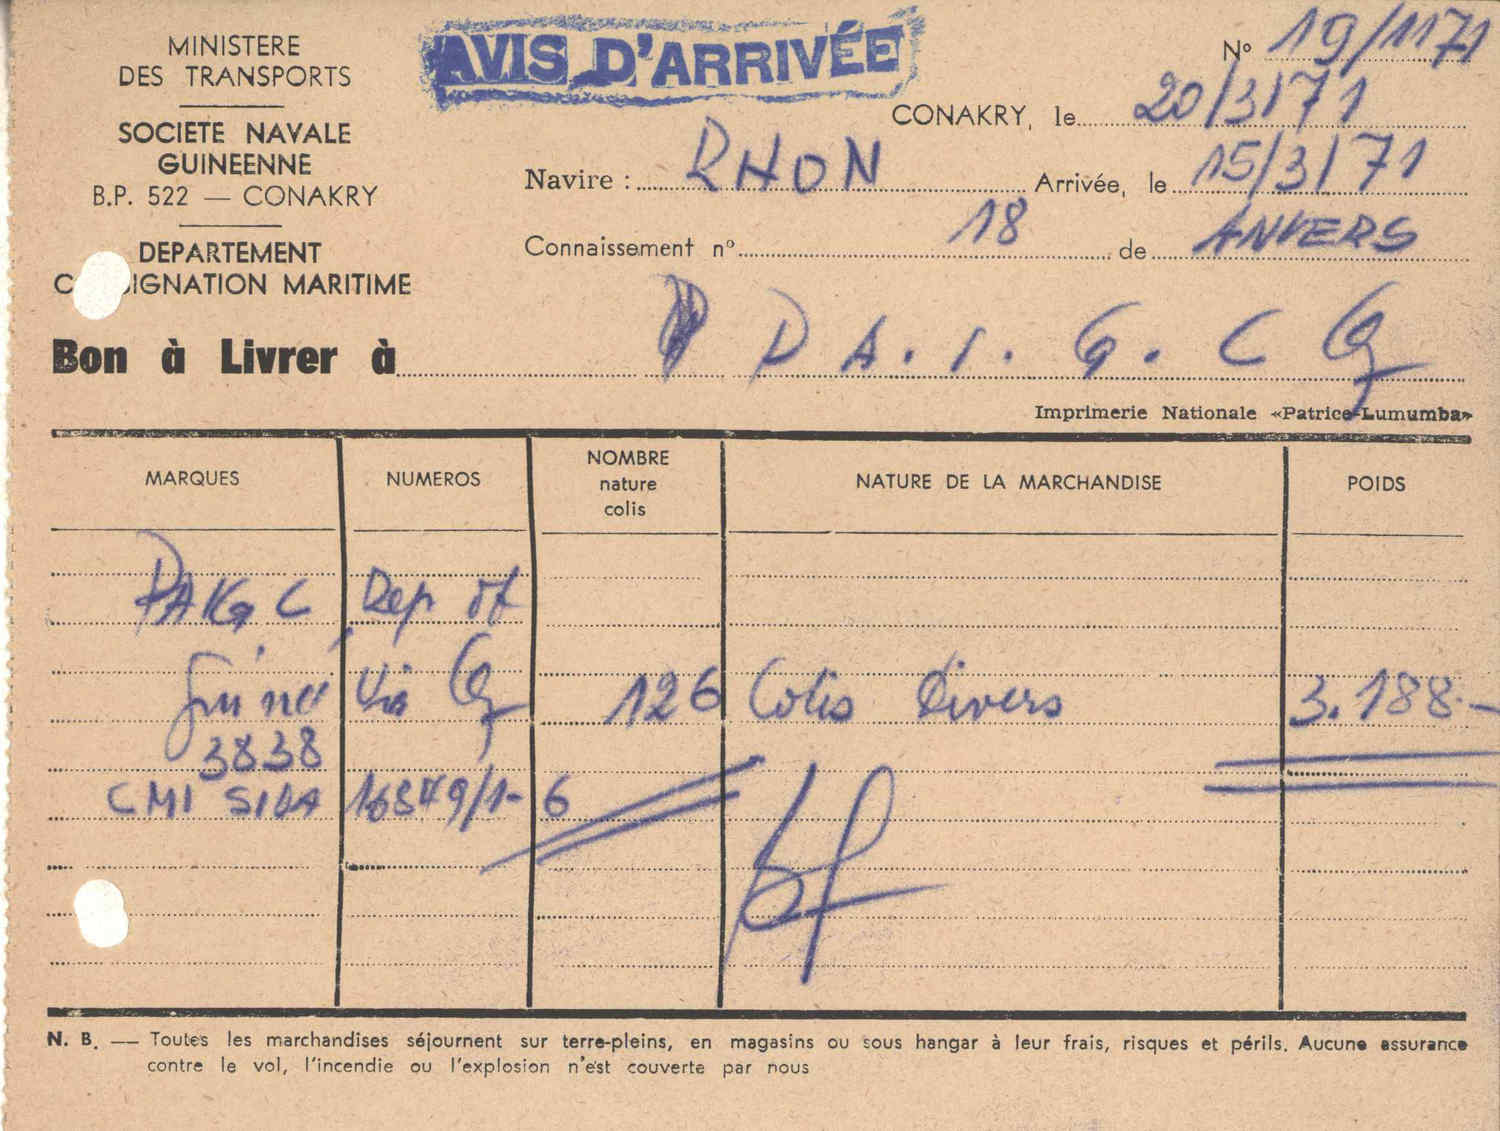 MINISTERE
DES TRANSPORTS
SOCIETE NAVALE
GUINEENNE
B.P. 522 — CONAKRY
DEPARTEMENT
C IGNATION MARITIME
AVIS D'ARRIVÉE
N° 19/1171
CONAKRY, le 20/3/71
Navire : RHON Arrivée, le 15/3/71
Connaissement n° 18 de ANVERS
Bon à Livrer à P. A. I. G. C
Imprimerie Nationale «Patrice-Lumumba»
MARQUES NUMEROS NOMBRE nature colis NATURE DE LA MARCHANDISE POIDS
PAIGC Rep of
Guiné Via 126 Colis Divers 3.188-
3838
CMI SIDA 16879/1- 6
N. B. — Toutes les marchandises séjournent sur terre-pleins, en magasins ou sous hangar à leur frais, risques et périls. Aucune assurance
contre le vol, l'incendie ou l'explosion n'est couverte par nous